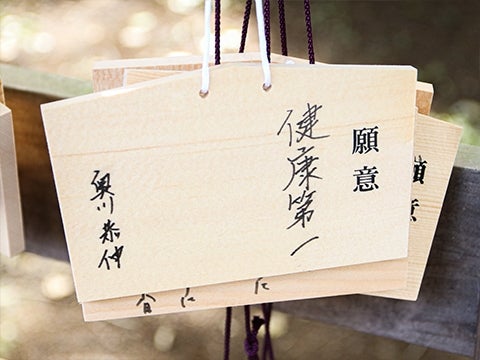 願意
健康第一
奥川恭伸
意